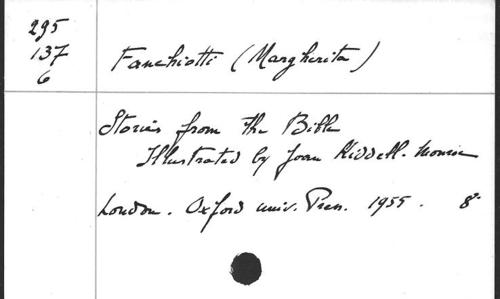 295
137
6
Fanchiotti (Margherita)
Stories from the Bible
Illustrated by Joan Kiddell-Monroe
London. Oxford univ. Press. 1955. 8°